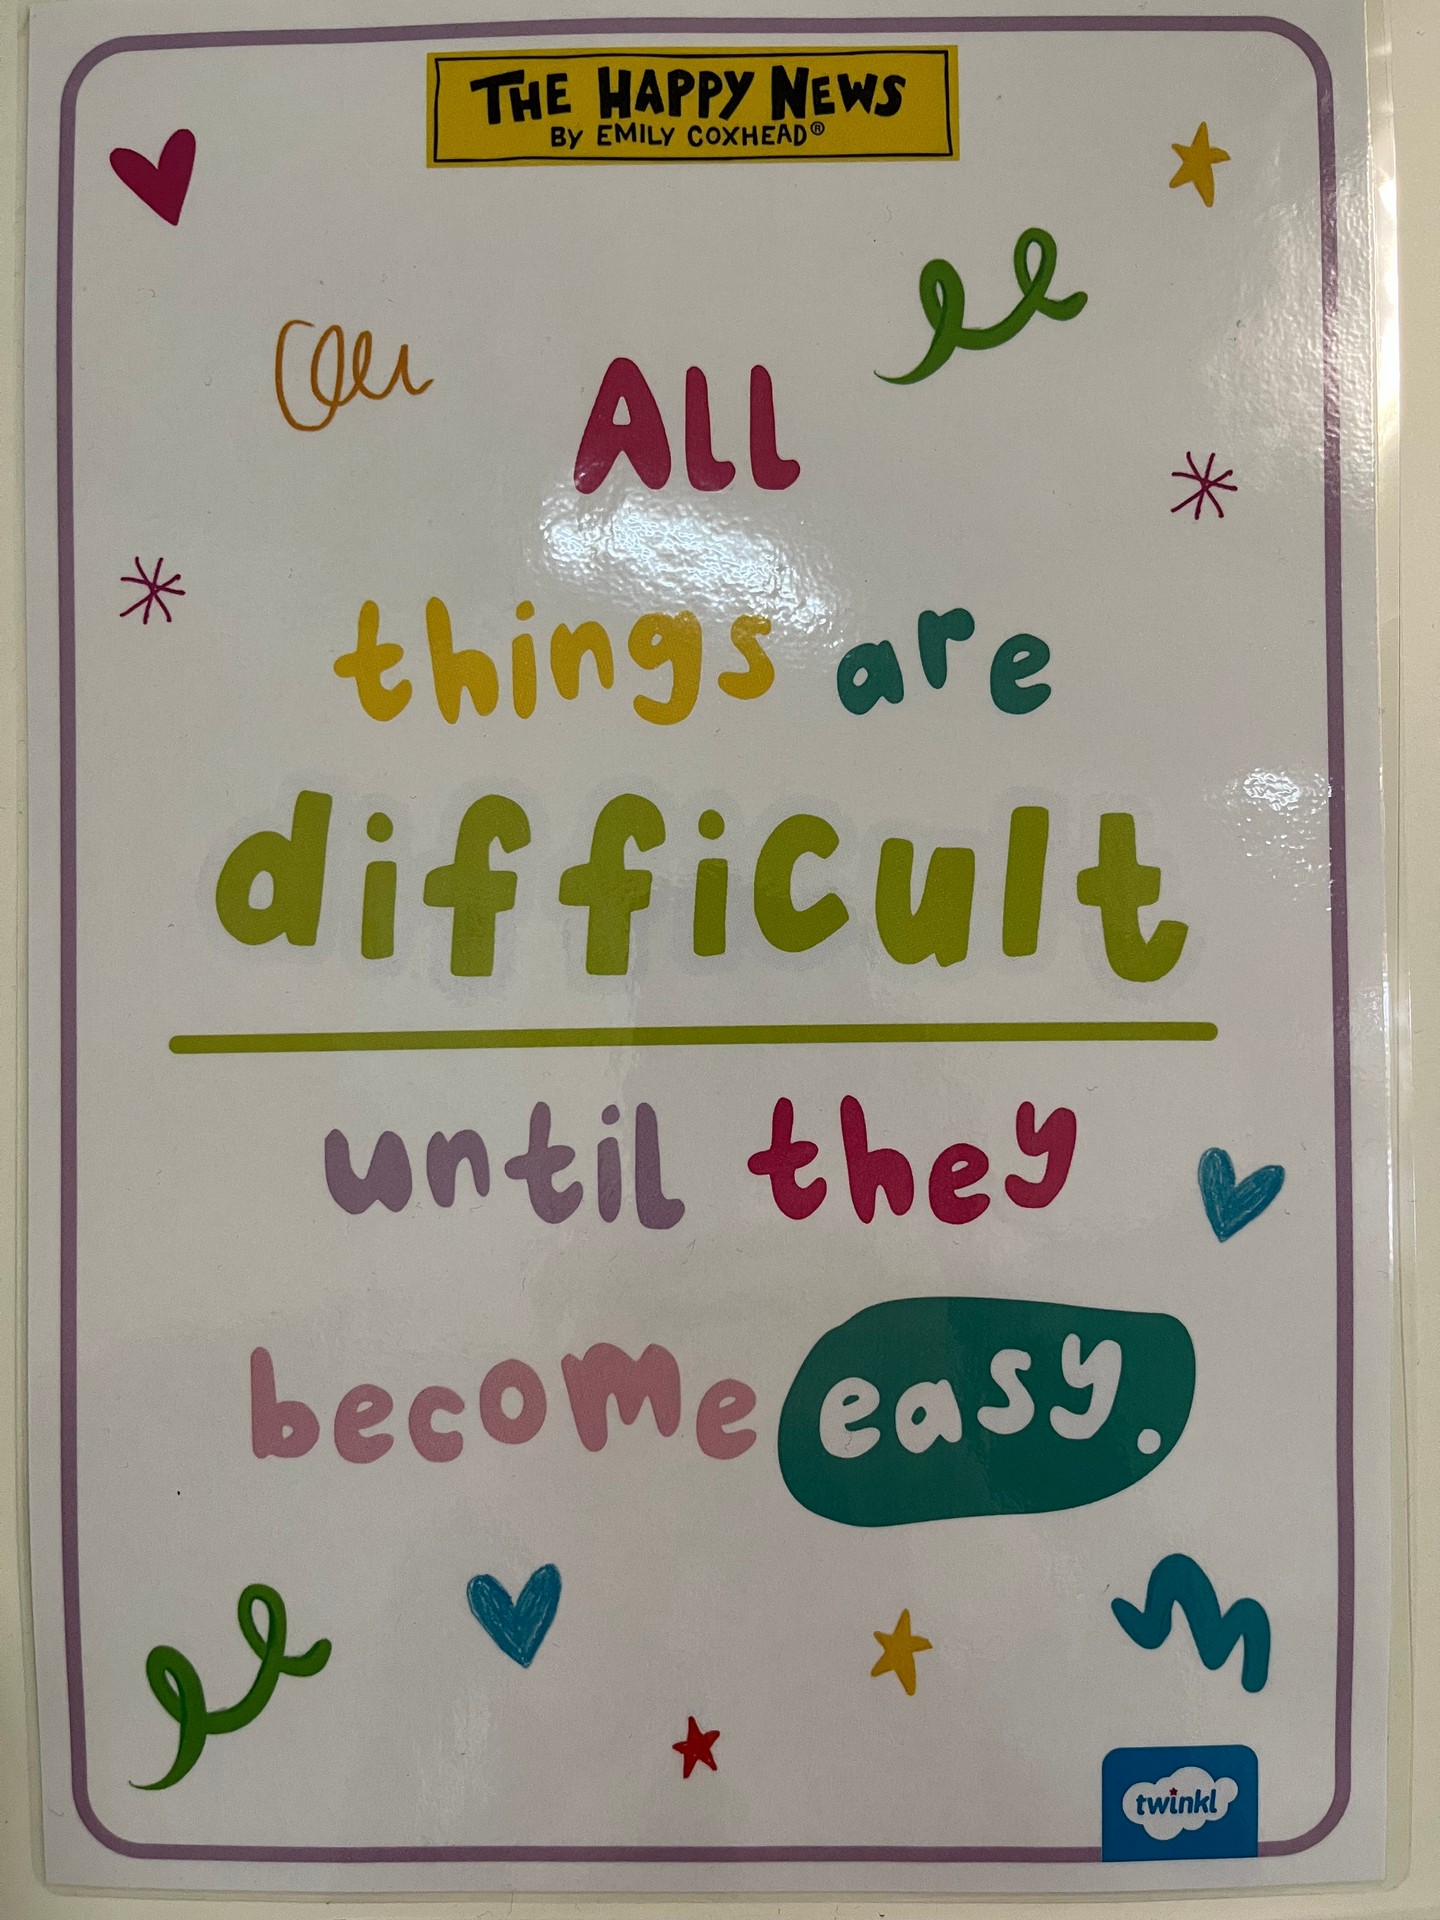 THE HAPPY NEWS
BY EMILY COXHEAD®
All
things are
difficult
until they
become easy.
twinkl